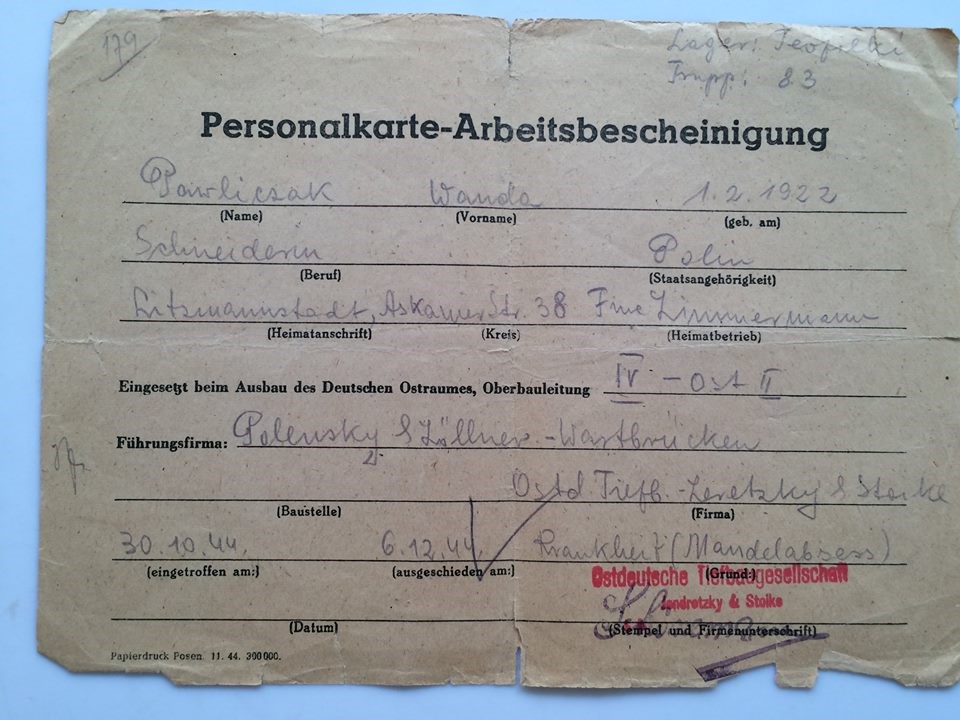 179
Lager: Teofilki
Trupp: 83
Personalkarte-Arbeitsbescheinigung
Pawliczak Wanda 1.2.1922
(Name) (Vorname) (geb. am)
Schneiderin Polin
(Beruf) (Staatsangehörigkeit)
Litzmannstadt, Askanier Str. 38 Zimmermann
(Heimatanschrift) (Kreis) (Heimatbetrieb)
Eingesetzt beim Ausbau des Deutschen Ostraumes, Oberbauleitung IV - Ost II
Führungsfirma: Polensky & Zöllner - Wartbrücken
Ostd Tiefb. & Stoike
(Baustelle) (Firma)
30.10.44. 6.12.44. Krankheit (Mandelabsess)
(eingetroffen am:) (ausgeschieden am:) (Grund:)
Ostdeutsche Tiefbaugesellschaft
Jendretzky & Stoike
(Datum) (Stempel und Firmenunterschrift)
Papierdruck Posen. 11. 44. 300000.